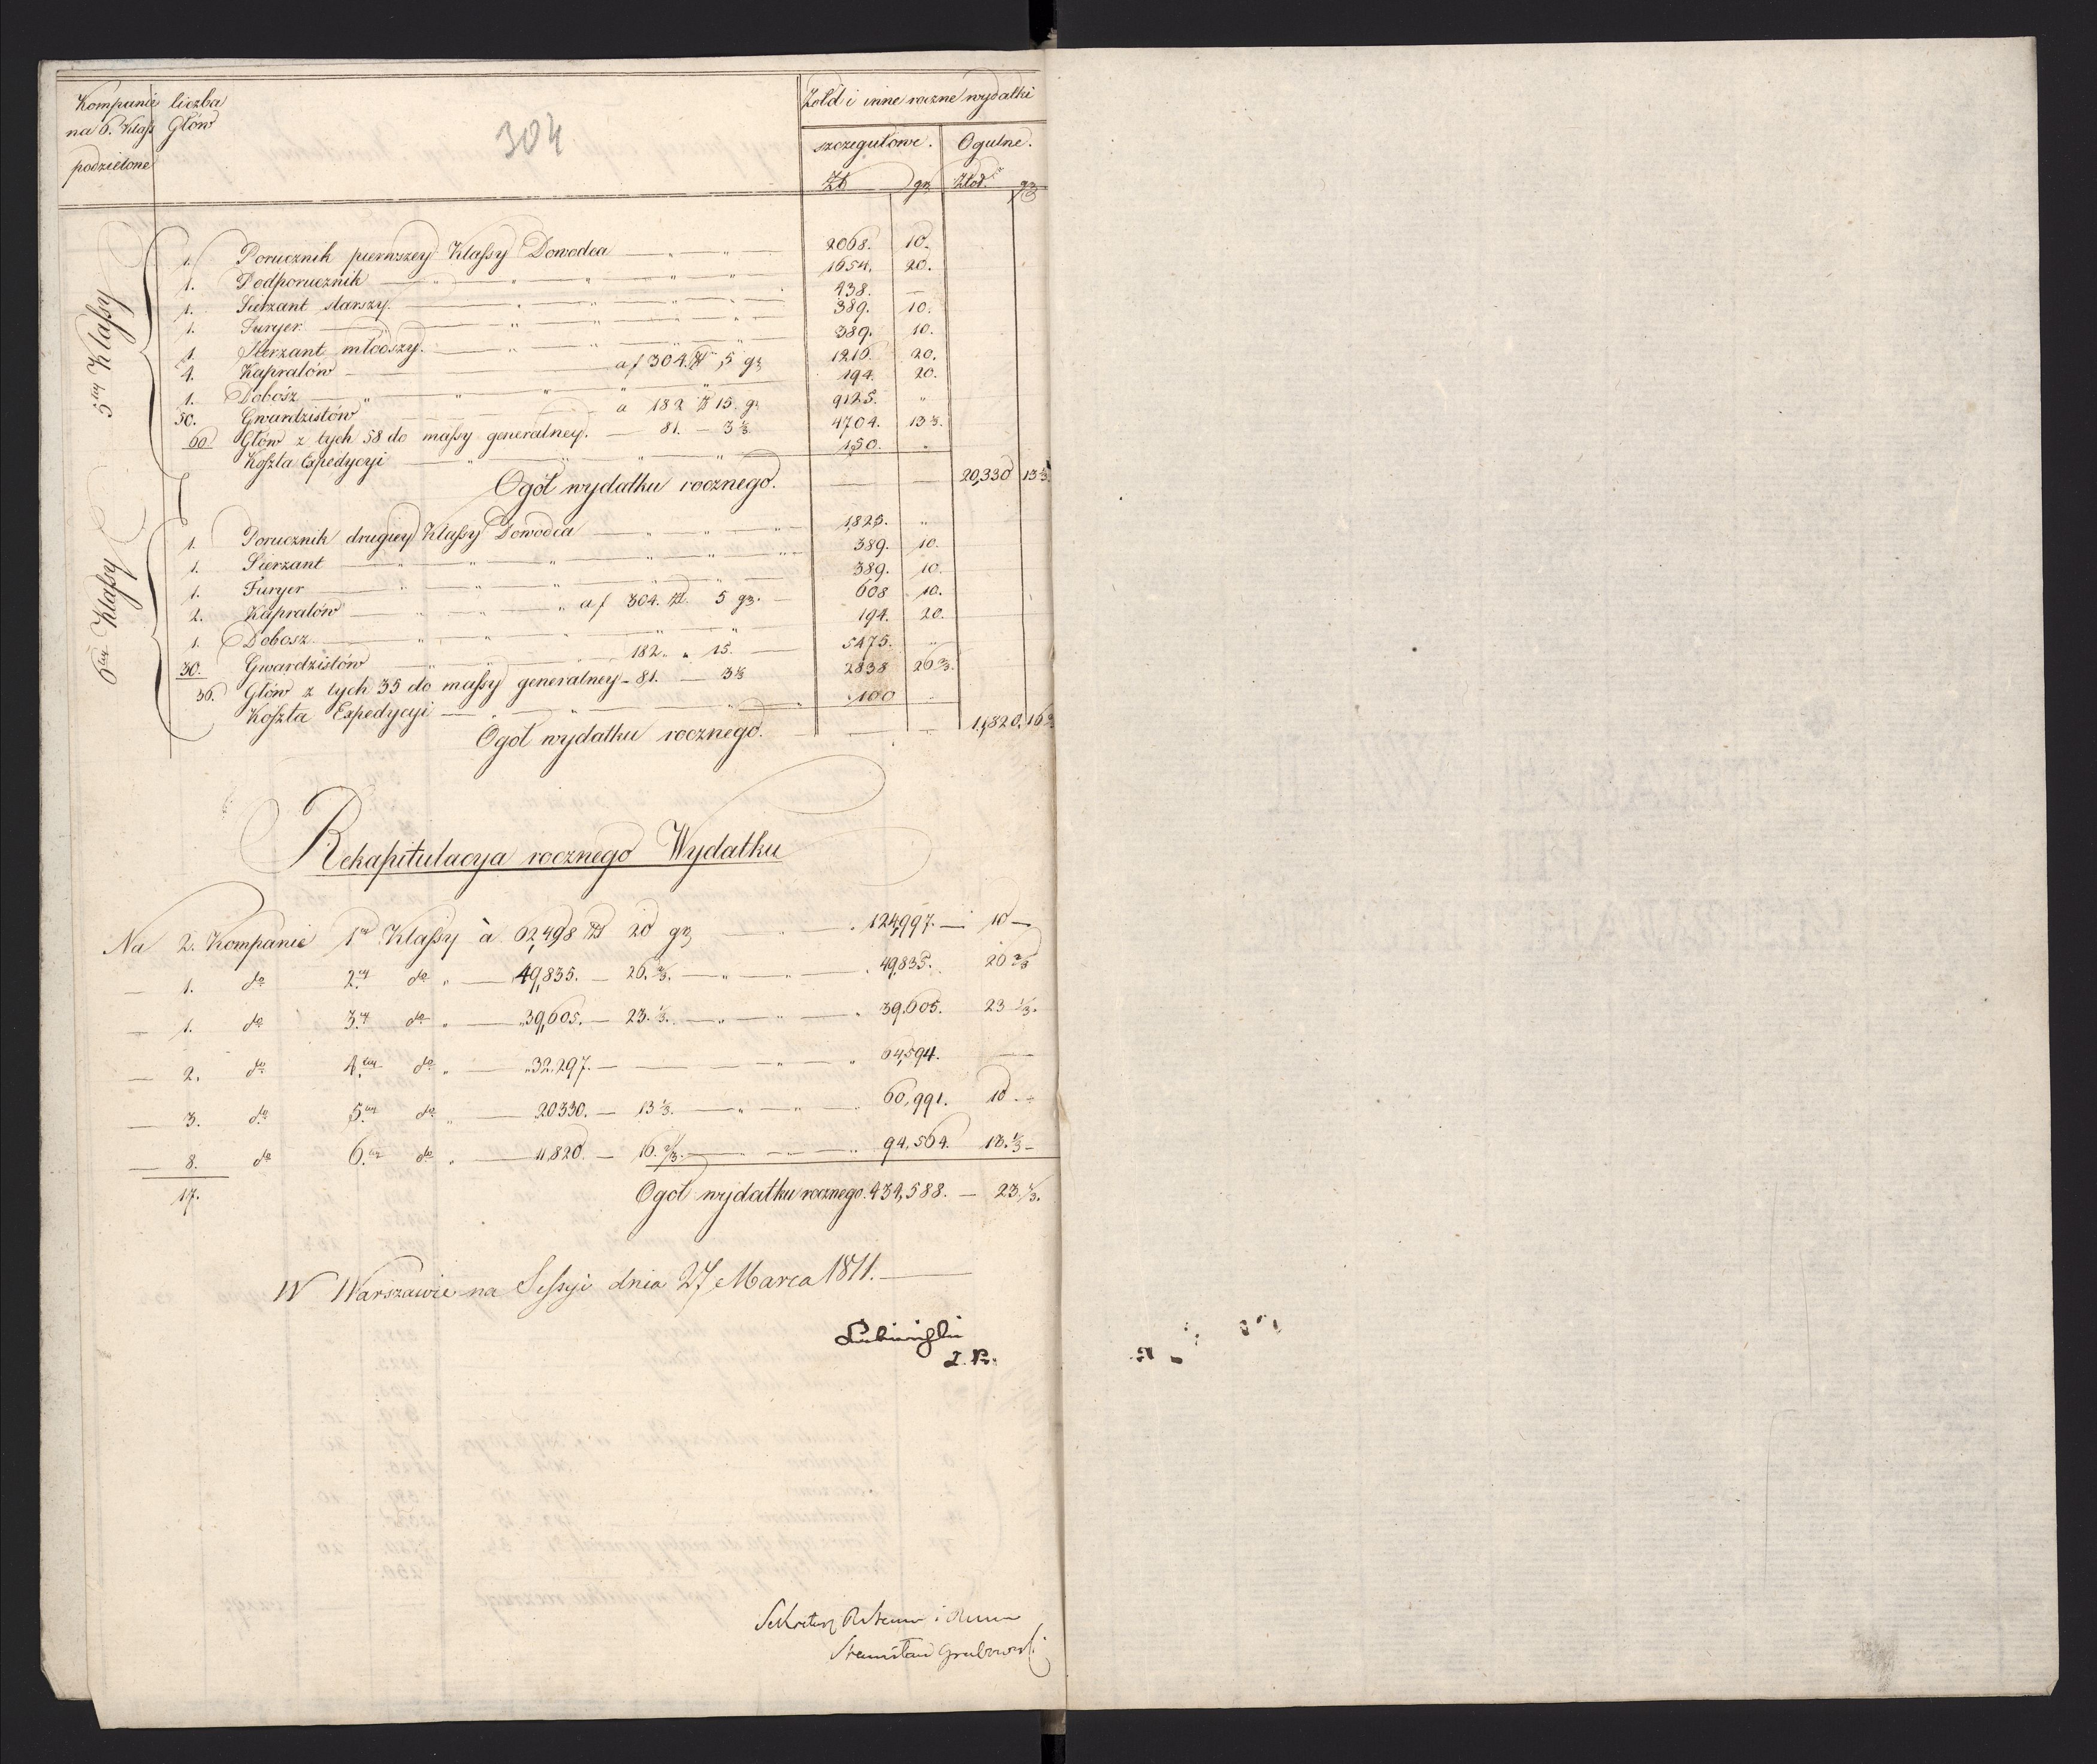 Kompanie liczba Żołd i inne roczne wydatki
na 6. Klass Głów
304
podzielone szczegułowe. Ogulne.
Zł gr Złot. gr
5tey Klassy
1. Porucznik pierwszey Klassy Dowodca — " — 2068. 10.
1. Podporucznik — " — " — " — 1654. 20.
1. Sierzant starszy. — " — " — " — 438. —
1. Furyer — " — " — " — 389. 10.
1. Sierzant młodszy. — " — " — " — 389. 10.
4. Kapralów — a/ 304. Zł 5 gr 1216. 20.
1. Dobósz — " — " — " — " — 194. 20.
50. Gwardzistów — a 182 Zł 15. gr 9125. "
60. Głów z tych 58 do massy generalney. — 81. — 3 1/3. 4704. 13 1/3.
Koszta Expedycyi — " — " — " — " 150. "
Ogół wydatku rocznego. — — 20,330 13 1/3.
6tey Klassy
1. Porucznik drugiey Klassy Dowodca — " — " — " — 1,825. "
1. Sierzant — " — " — " — " — " — 389. 10.
1. Furyer — " — " — " — " — 389. 10.
2. Kapralów — " — " — " a/ 304. Zł. 5 gr. — 608 10.
1. Dobosz. — " — " — " — " — " 194. 20.
30. Gwardzistów — " — " — 182. " 15. — 5475. "
36. Głów z tych 35 do massy generalney - 81. — 3 1/3 2838 26 2/3.
Koszta Expedycyi — " — " — " — 100 "
Ogół wydatku rocznego. — — 11,820. 16 2/3.
Rekapitulacya rocznego Wydatku
Na 2. Kompanie 1ey Klassy à 62,498 Zł 20 gr — " — " 124,997. — 10 —
— 1. do 2ey do " — 49,835. — 26. 2/3. — " — " — " 49,835. 26 2/3
— 1. do 3ey do " — 39,605. — 23. 1/3. — " — " — " 39,605. 23 1/3.
— 2. do 4tey do " — 32,297. — — — " — " 64,594. —
— 3. do 5tey do " — 20330. — 13 1/3. — " — " — 60,991. 10 —
— 8. do 6tey do " — 11,820. — 16. 2/3. — " — " — " 94,564. 13. 1/3 —
17. Ogół wydatku rocznego. 434,588. — 23. 1/3.
W Warszawie na Sessyi dnia 27 Marca 1811. —
Łubieński
Stanisław Grabowski